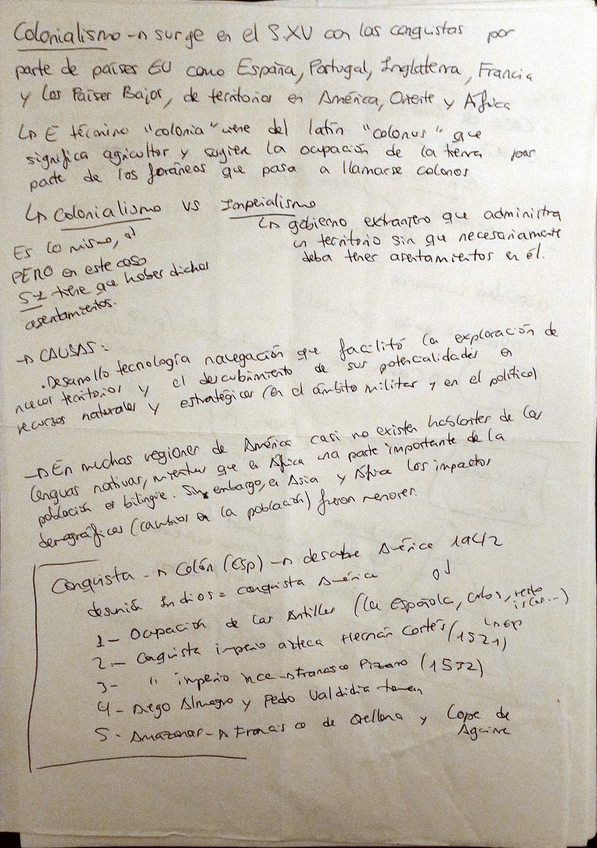 Colonialismo → surge en el S.XV con las conquistas por
parte de países EU como España, Portugal, Inglaterra, Francia
y los Países Bajos, de territorios en América, Oriente y África
↳ E término "colonia" viene del latín "colonus" que
significa agricultor y sugiere la ocupación de la tierra por
parte de los foráneos que pasa a llamarse colonos
↳ Colonialismo vs Imperialismo
↳ gobierno extranjero que administra
un territorio sin que necesariamente
deba tener asentamientos en él.
Es lo mismo,
PERO en este caso
SI tiene que haber dichos
asentamientos.
→ CAUSAS:
. Desarrollo tecnología navegación que facilitó la exploración de
nuevos territorios y el descubrimiento de sus potencialidades en
recursos naturales y estratégicos (en el ámbito militar y en el político)
→ En muchas regiones de América casi no existen hablantes de las
lenguas nativas, mientras que en África una parte importante de la
población es bilingüe. Sin embargo, en Asia y África los impactos
demográficos (cambios en la población) fueron menores.
Conquista → Colón (Esp) → descubre América 1942
desunión Indios = conquista América
1- Ocupación de las Antillas (la Española, Cuba, resto
islas...)
2- Conquista imperio azteca Hernán Cortés (1521)
↳ esp
3- " imperio inca → Francisco Pizarro (1532)
4- Diego Almagro y Pedro Valdidia
5- Amazonas → Francisco de Orellana y Lope de
Aguirre